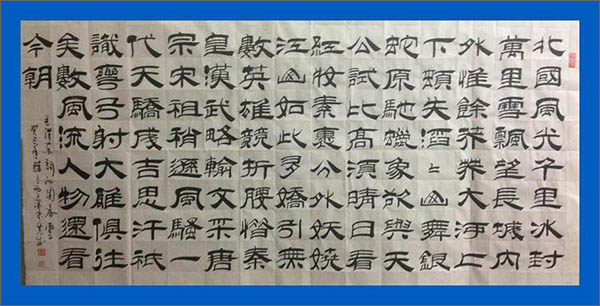 北國風光千里冰封
萬里雪飄望長城內
外惟餘莽莽大河上
下頓失滔滔山舞銀
蛇原馳蠟象欲與天
公試比高須晴日看
紅妝素裹分外妖嬈
江山如此多嬌引無
數英雄競折腰惜秦
皇漢武略輸文采唐
宗宋祖稍遜風騷一
代天驕成吉思汗祇
識彎弓射大雕俱往
矣數風流人物還看
今朝
毛澤東詞沁園春雪
癸巳年